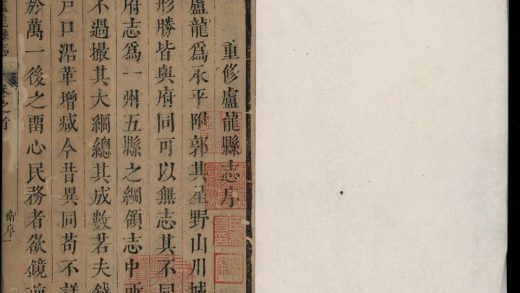 重修盧龍縣志序
盧龍爲永平附郭其星野山川城
形勝皆與府同可以無志其不同
府志爲一州五縣之綱領志中所
不過撮其大綱總其成數若夫錢
戶口沿革增減今昔異同苟不詳
於萬一後之畱心民務者欲鏡
縣志
卷之首
序一